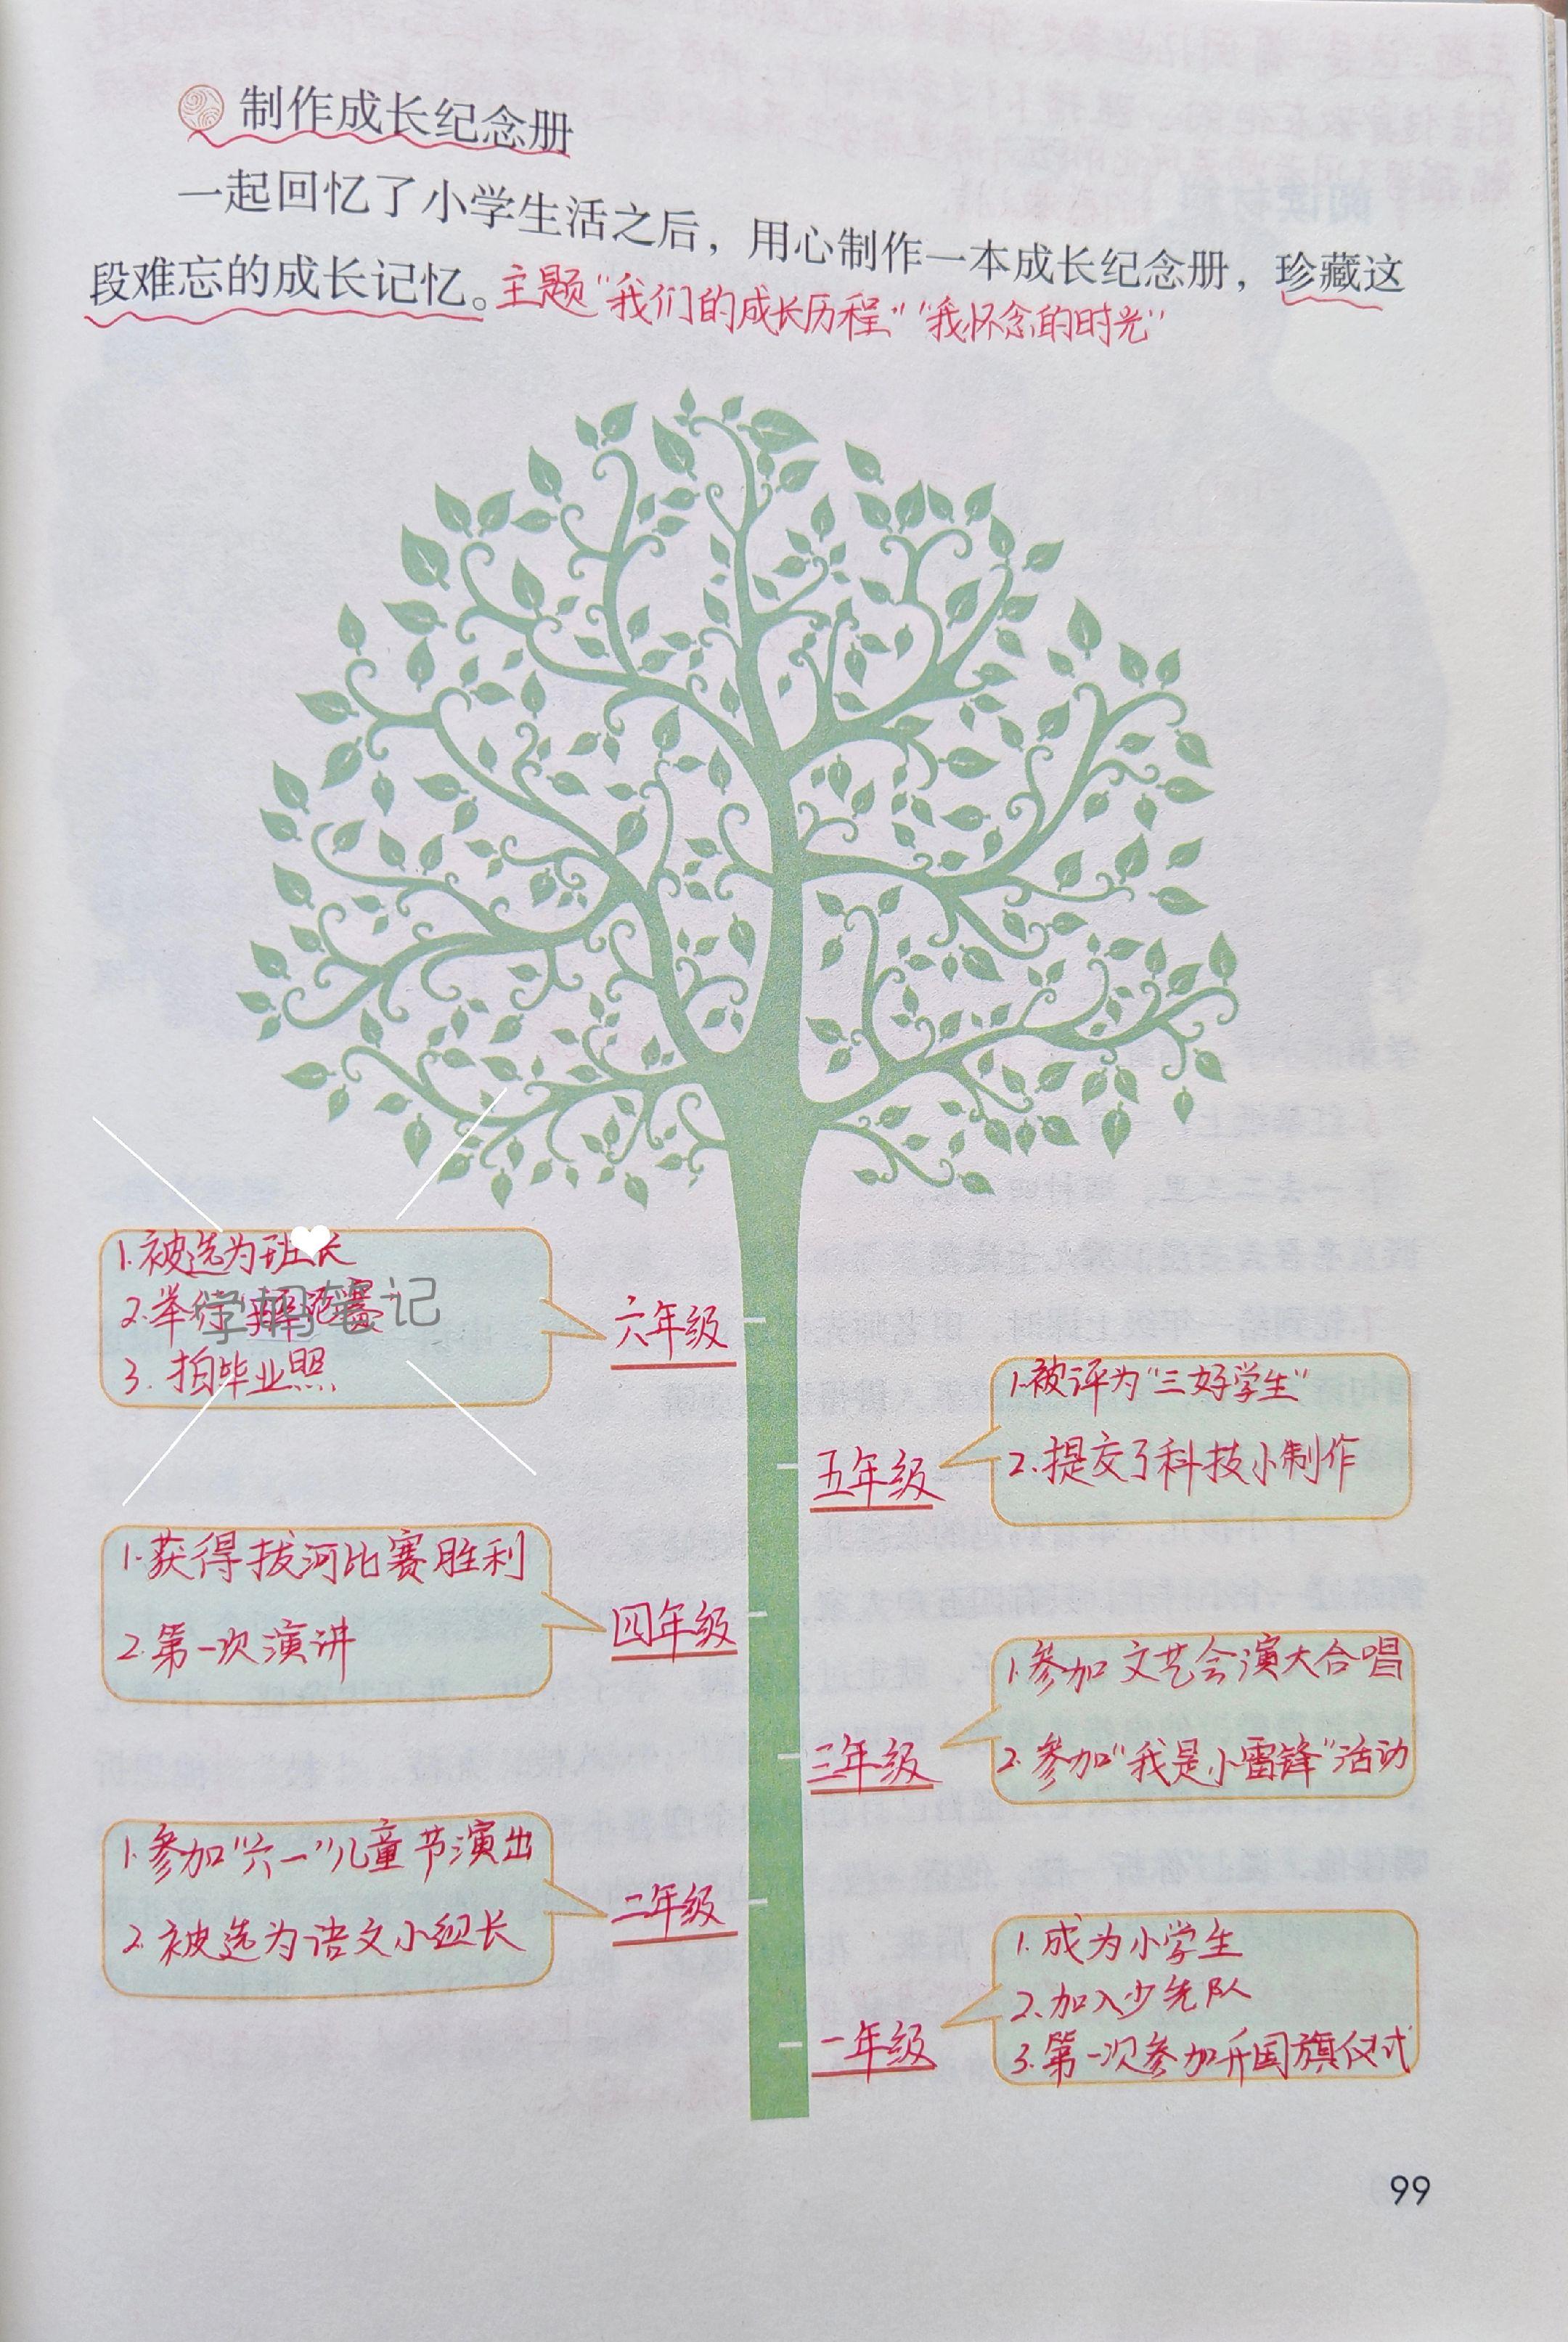 制作成长纪念册
一起回忆了小学生活之后，用心制作一本成长纪念册，珍藏这
段难忘的成长记忆。主题“我们的成长历程”“我怀念的时光”
1.被选为班长
2.举行
3.拍毕业照
学妈笔记
六年级
1.被评为“三好学生”
2.提交了科技小制作
五年级
1.获得拔河比赛胜利
2.第一次演讲
四年级
1.参加文艺会演大合唱
2.参加“我是小雷锋”活动
三年级
1.参加“六一”儿童节演出
2.被选为语文小组长
二年级
1.成为小学生
2.加入少先队
3.第一次参加升国旗仪式
一年级
99